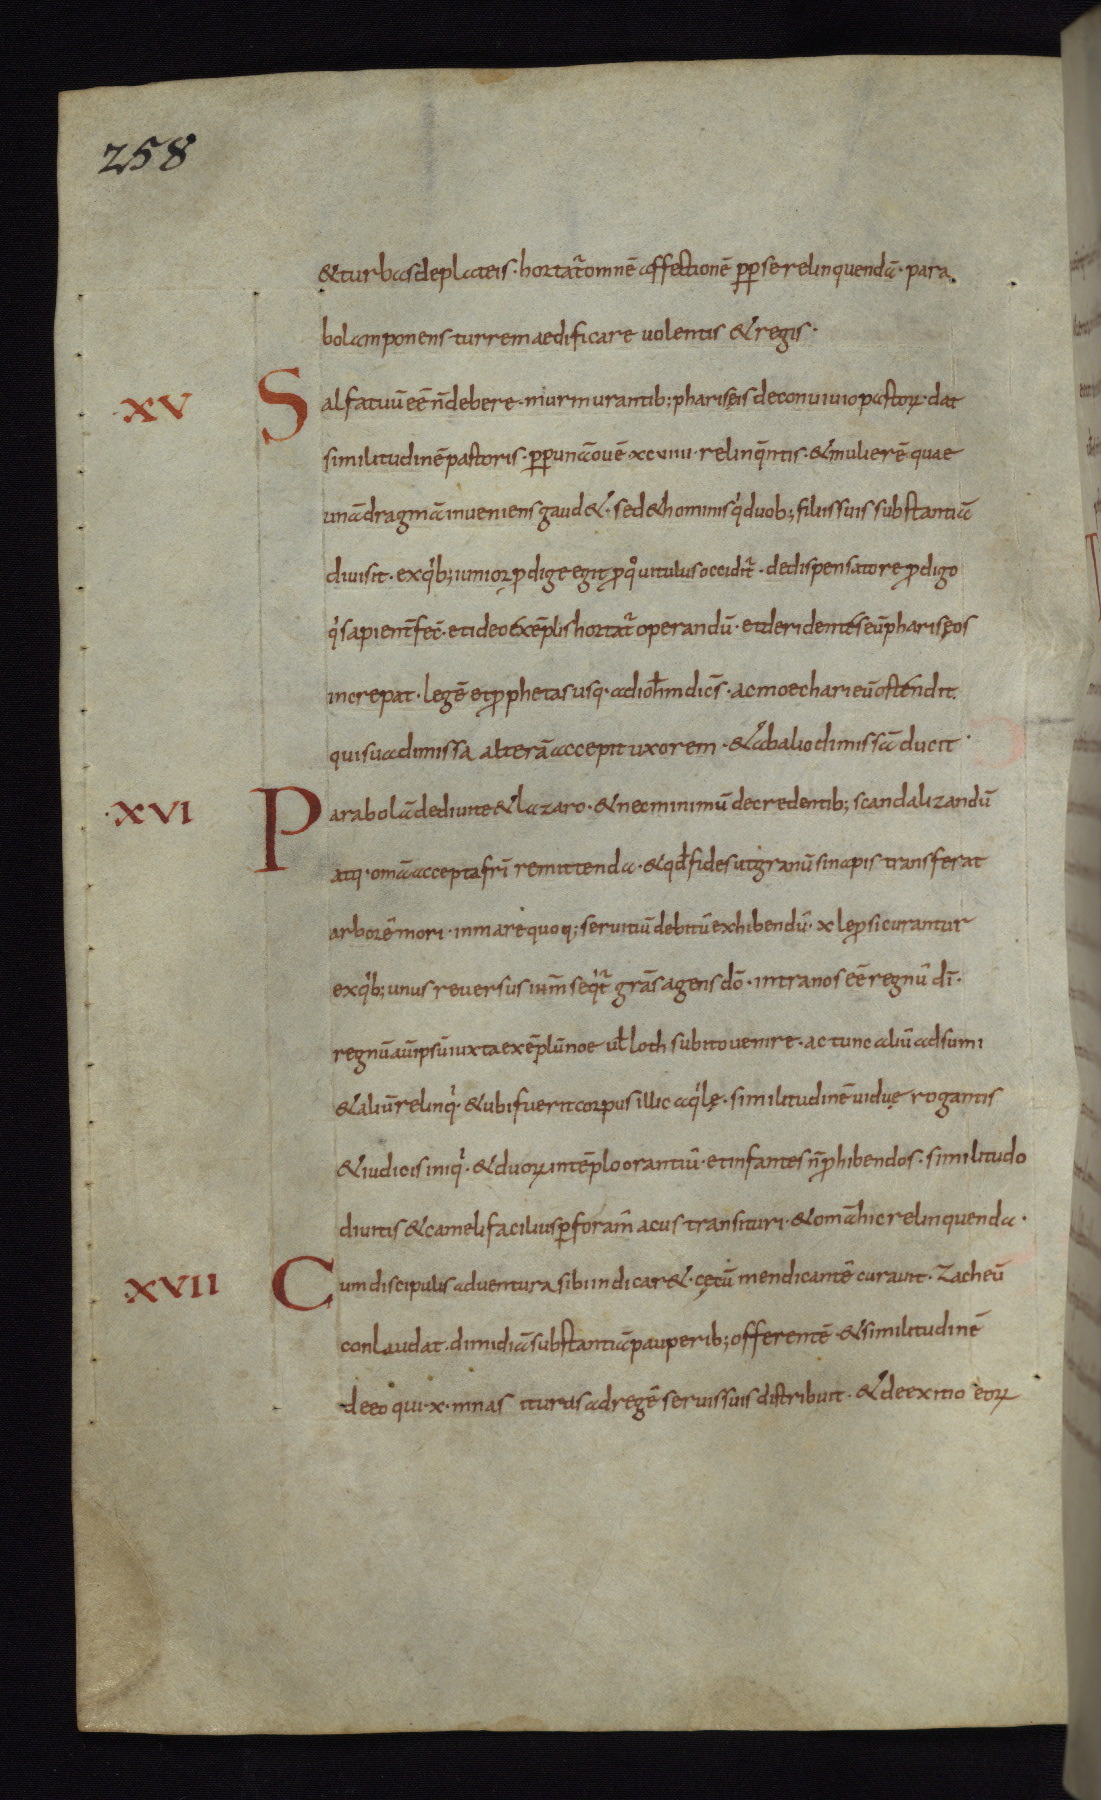 258
&turbasdeplateis· hortat̃omnē affectionē ꝓpꝑ serelinquendā· para
bolamponens turremaedificare uolentis & regis·
·XV Salfatuū eē ñdebere· murmurantib; phariseis deconuiuio pastoꝝ· dat
similitudinē pastoris· ꝓpꝑ unā ouē xcviiii· relinq̄ntis· & mulierē quae
unā dragmā inueniens gaud&· sed & hominis qͥ duob; filiis suis substantiā
diuisit· exqͥb; iunior ꝓdige egit ꝓ qͦ uitulus occidit̃· dedispensatore ꝓdigo
qͥ sapient̃ fec̄· et ideo exēplis hortat̃ operandū· et deridentes eū pharisęos
increpat· legē et ꝓphetas usq· ad ioh̄m dic̄s· ac moechari eū ostendit
qui sua dimissa alterā accepit uxorem· & ab alio dimissā ducit·
·XVI Parabolā dediuite & lazaro· & nec minimū decredentib; scandalizandū
atq· om̄a accepta fr̄i remittenda· & qd̄ fides ut granū sinapis transferat
arborē mori· in mare quoq; seruitiū debitū exhibendū· x leprosi curantur
exqͥb; unus reuersus iūm seqͥt̃ grās agens dō· intra nos eē regnū dī·
regnū aū ipsū iuxta exēplū noe ul̄ loth subito uenire· ac tunc aliū adsumi
& aliū relinqͥ· & ubi fuerit corpus illic aqͥlę· similitudinē uiduę rogantis
& iudicis iniqͥ· & duoꝝ in tēplo orantiū· et infantes ñ ꝓhibendos· similitudo
diuitis & cameli facilius ꝑ foram̄ acus transituri· & om̄a hic relinquenda·
·XVII Cum discipulis aduentura sibi indicar&· cętū mendicantē curauit· Zacheū
conlaudat· dimidiā substantiā pauperib; offerentē· & similitudinē
de eo qui· x· mnas iturus ad regē seruis suis distribuit· & de exitio eoꝝ